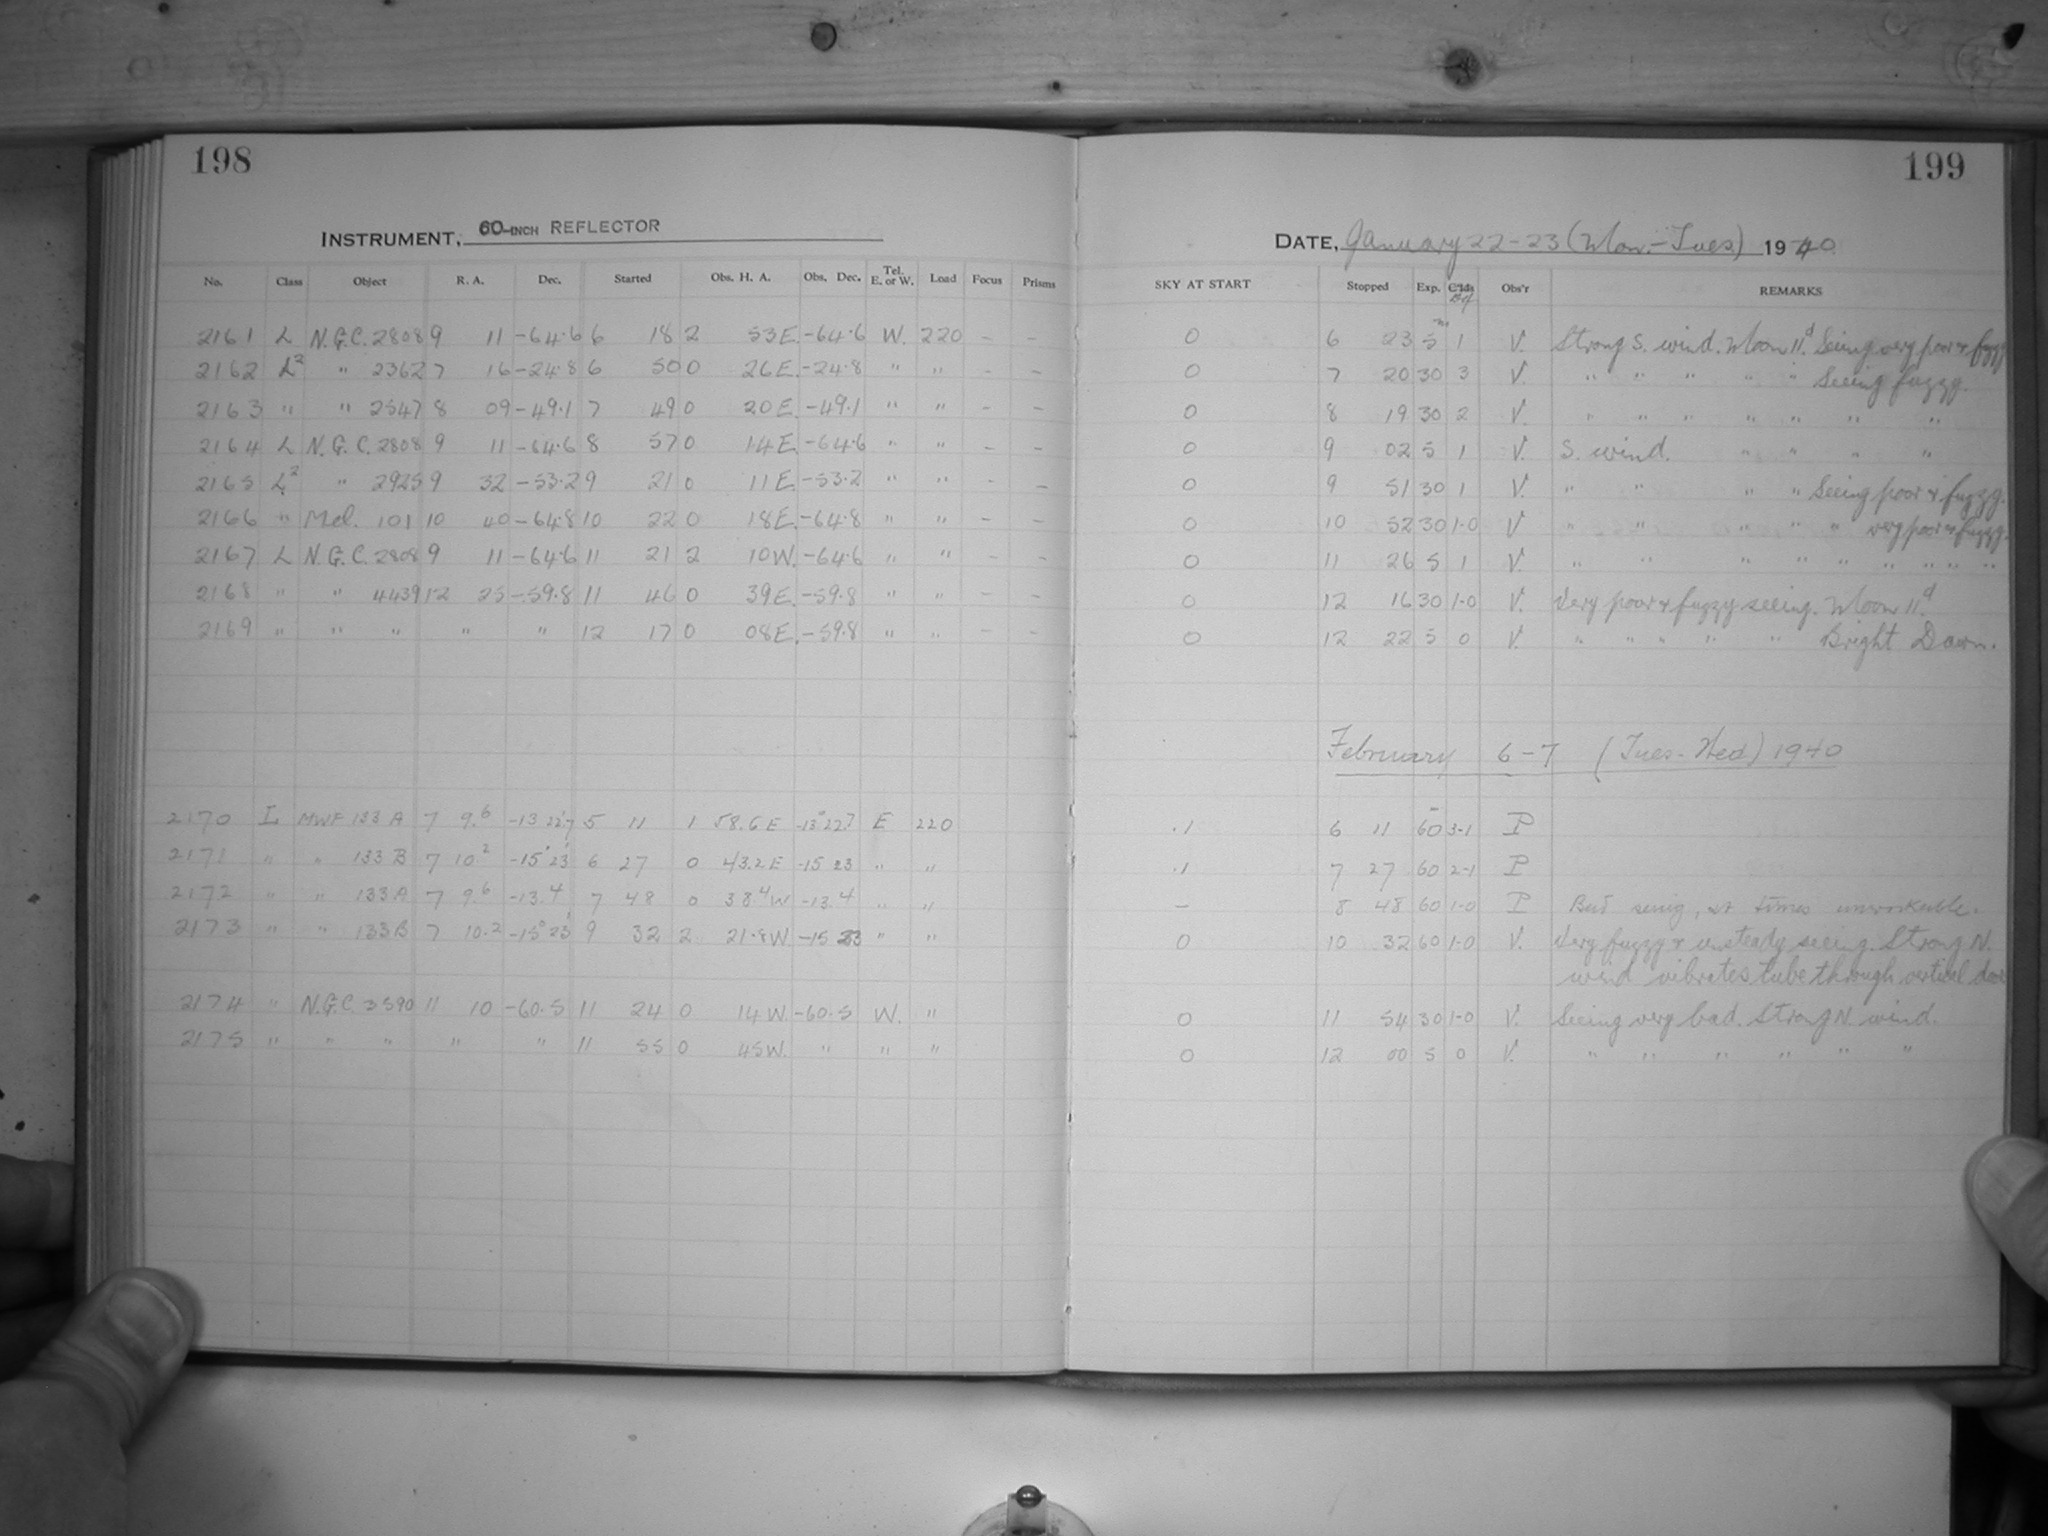 198
INSTRUMENT, 60-INCH REFLECTOR
No. Class Object R. A. Dec. Started Obs. H. A. Obs. Dec. Tel. E. or W. Load Focus Prisms
2161 L N.G.C. 2808 9 11 -64.6 6 18 2 53 E. -64.6 W. 220 - -
2162 L² " 2362 7 16 -24.8 6 50 0 26 E. -24.8 " " - -
2163 " " 2547 8 09 -49.1 7 49 0 20 E. -49.1 " " - -
2164 L N.G.C. 2808 9 11 -64.6 8 57 0 14 E. -64.6 " " - -
2165 L² " 2925 9 32 -53.2 9 21 0 11 E. -53.2 " " - -
2166 " Mel. 101 10 40 -64.8 10 22 0 18 E. -64.8 " " - -
2167 L N.G.C. 2808 9 11 -64.6 11 21 2 10 W. -64.6 " " - -
2168 " " 4439 12 25 -59.8 11 46 0 39 E. -59.8 " " - -
2169 " " " " " 12 17 0 08 E. -59.8 " " - -
2170 L MWF 133 A 7 9.6 -13 22.7 5 11 1 58.6 E -13° 22.7 E 220
2171 " " 133 B 7 10.2 -15° 23' 6 27 0 43.2 E -15 23 " "
2172 " " 133 A 7 9.6 -13.4 7 48 0 38.4 W -13.4 " "
2173 " " 133 B 7 10.2 -15° 23' 9 32 2 21.8 W -15 23 " "
2174 " N.G.C. 3590 11 10 -60.5 11 24 0 14 W. -60.5 W. "
2175 " " " " " 11 55 0 45 W. " " "
199
DATE, January 22-23 (Mon.-Tues) 1940
SKY AT START Stopped Exp. Obs'r REMARKS
0 6 23 5 m 1 V. Strong S. wind. Moon 11.d Seeing very poor & fuzzy
0 7 20 30 3 V. " " " " " Seeing fuzzy.
0 8 19 30 2 V. " " " " " " "
0 9 02 5 1 V. S. wind. " " " "
0 9 51 30 1 V. " " " " Seeing poor & fuzzy.
0 10 52 30 1-0 V. " " " " " very poor & fuzzy.
0 11 26 5 1 V. " " " " " " " " "
0 12 16 30 1-0 V. Very poor & fuzzy seeing. Moon 11.d
0 12 22 5 0 V. " " " " " Bright Dawn.
February 6-7 (Tues-Wed) 1940
.1 6 11 60 3-1 P
.1 7 27 60 2-1 P
- 8 48 60 1-0 P Bad seeing, at times unworkable.
0 10 32 60 1-0 V. Very fuzzy & unsteady seeing. Strong N.
wind vibrates tube through vertical door
0 11 54 30 1-0 V. Seeing very bad. Strong N. wind.
0 12 00 5 0 V. " " " " " "